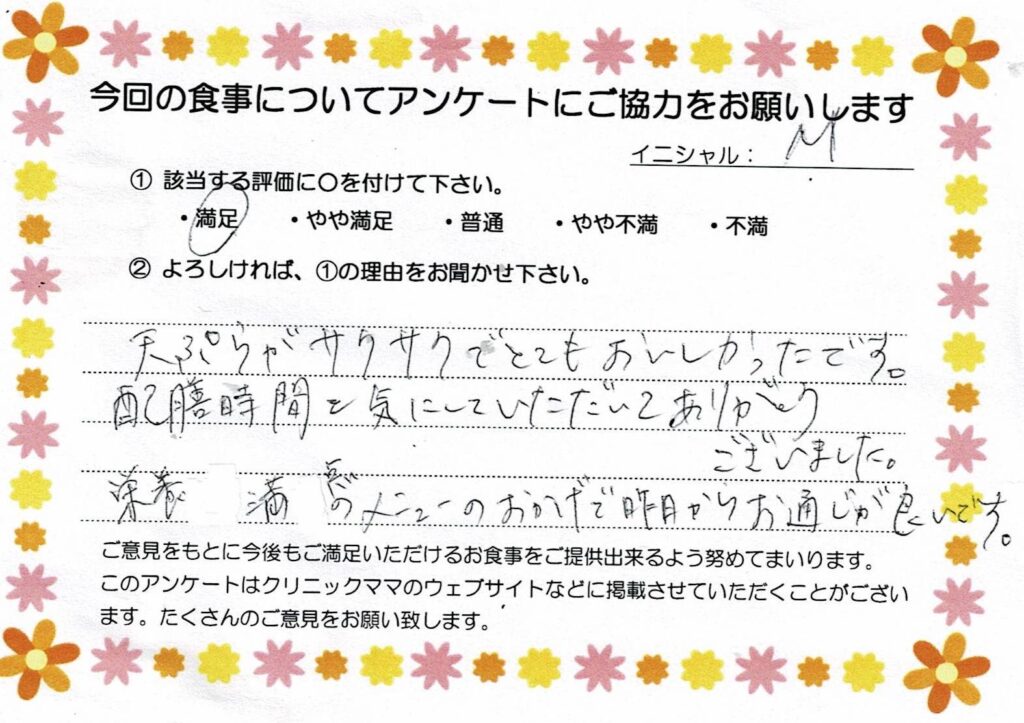 今回の食事についてアンケートにご協力をお願いします
イニシャル： M
① 該当する評価に〇を付けて下さい。
・満足 ・やや満足 ・普通 ・やや不満 ・不満
② よろしければ、①の理由をお聞かせ下さい。
天ぷらがサクサクでとてもおいしかったです。
配膳時間を気にしていただいてありがとう
ございました。
栄養 満点のメニューのおかげで昨日からお通じが良いです。
ご意見をもとに今後もご満足いただけるお食事をご提供出来るよう努めてまいります。
このアンケートはクリニックママのウェブサイトなどに掲載させていただくことがござい
ます。たくさんのご意見をお願い致します。